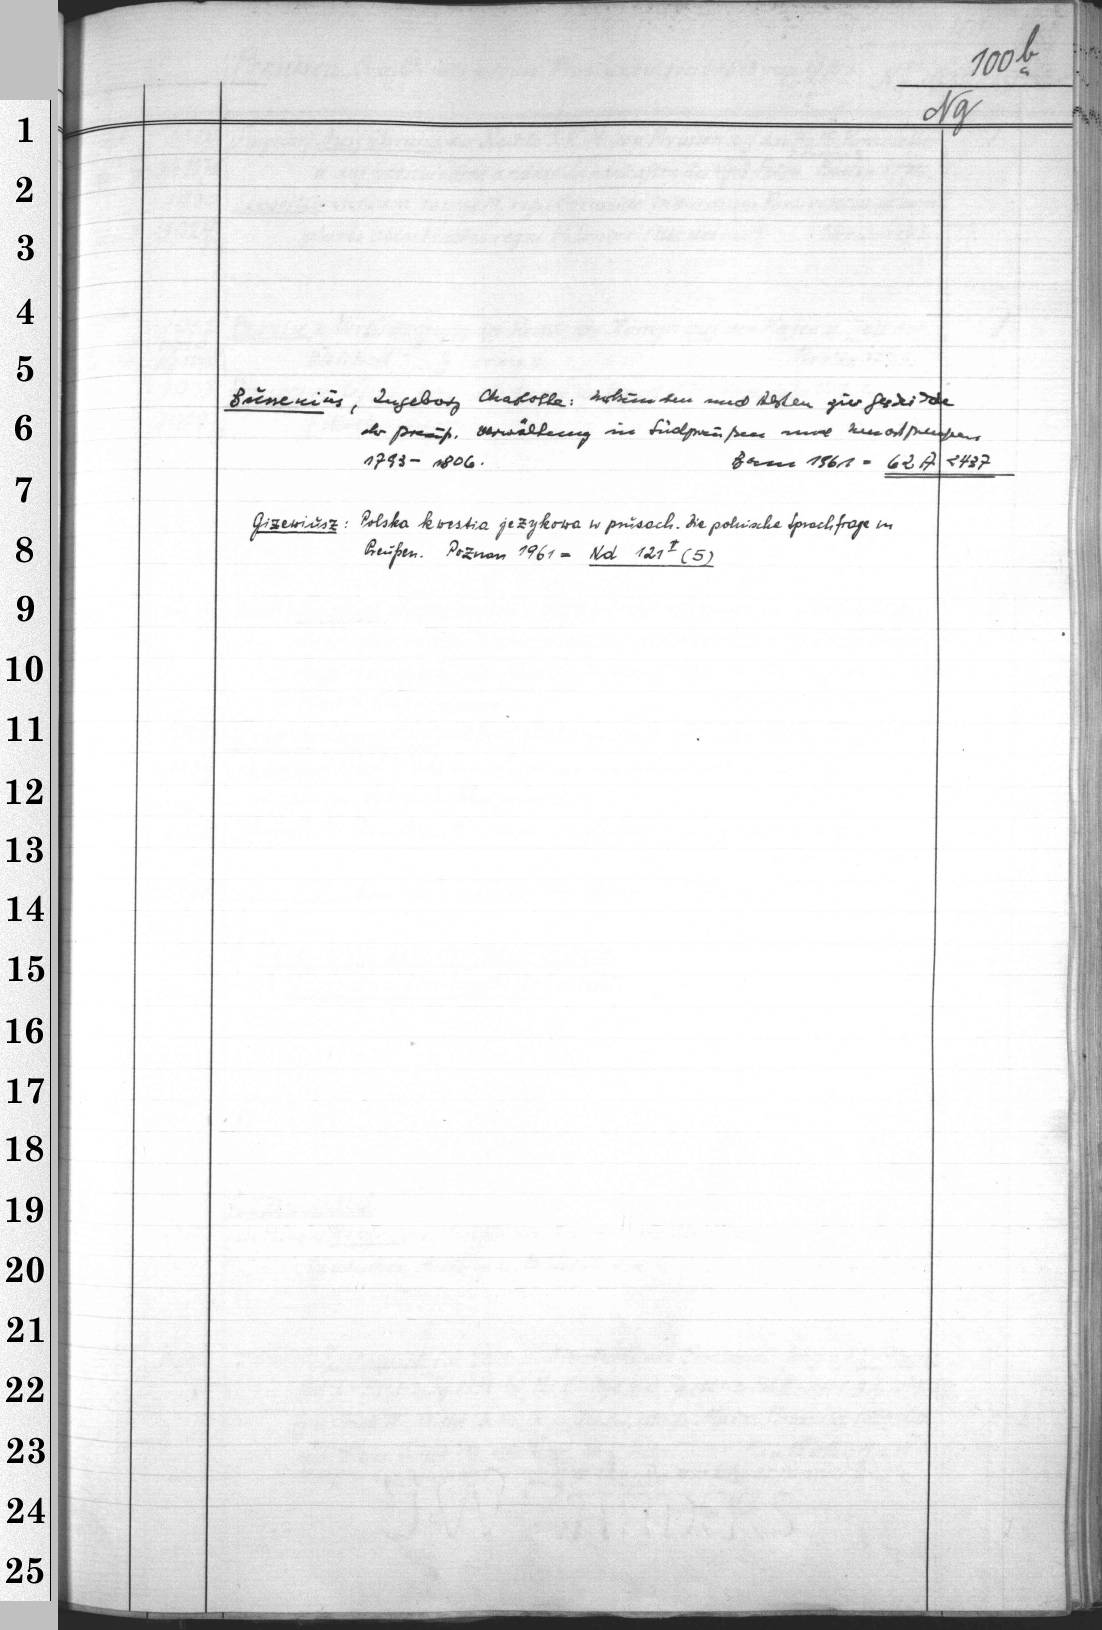 100 b
a
Ng
1
2
3
4
5
6
7
8
9
10
11
12
13
14
15
16
17
18
19
20
21
22
23
24
25
Bussenius, Ingeborg Charlotte: Urkunden und Akten zur Geschichte
der preuß. Verwaltung in Südpreußen und Neuostpreußen
1793 - 1806. Bonn 1961 = 62 A 2437
Gizewiusz: Polska kwestia językowa w prusach. Die polnische Sprachfrage in
Preußen. Poznan 1961 = Nd 121 I (5)